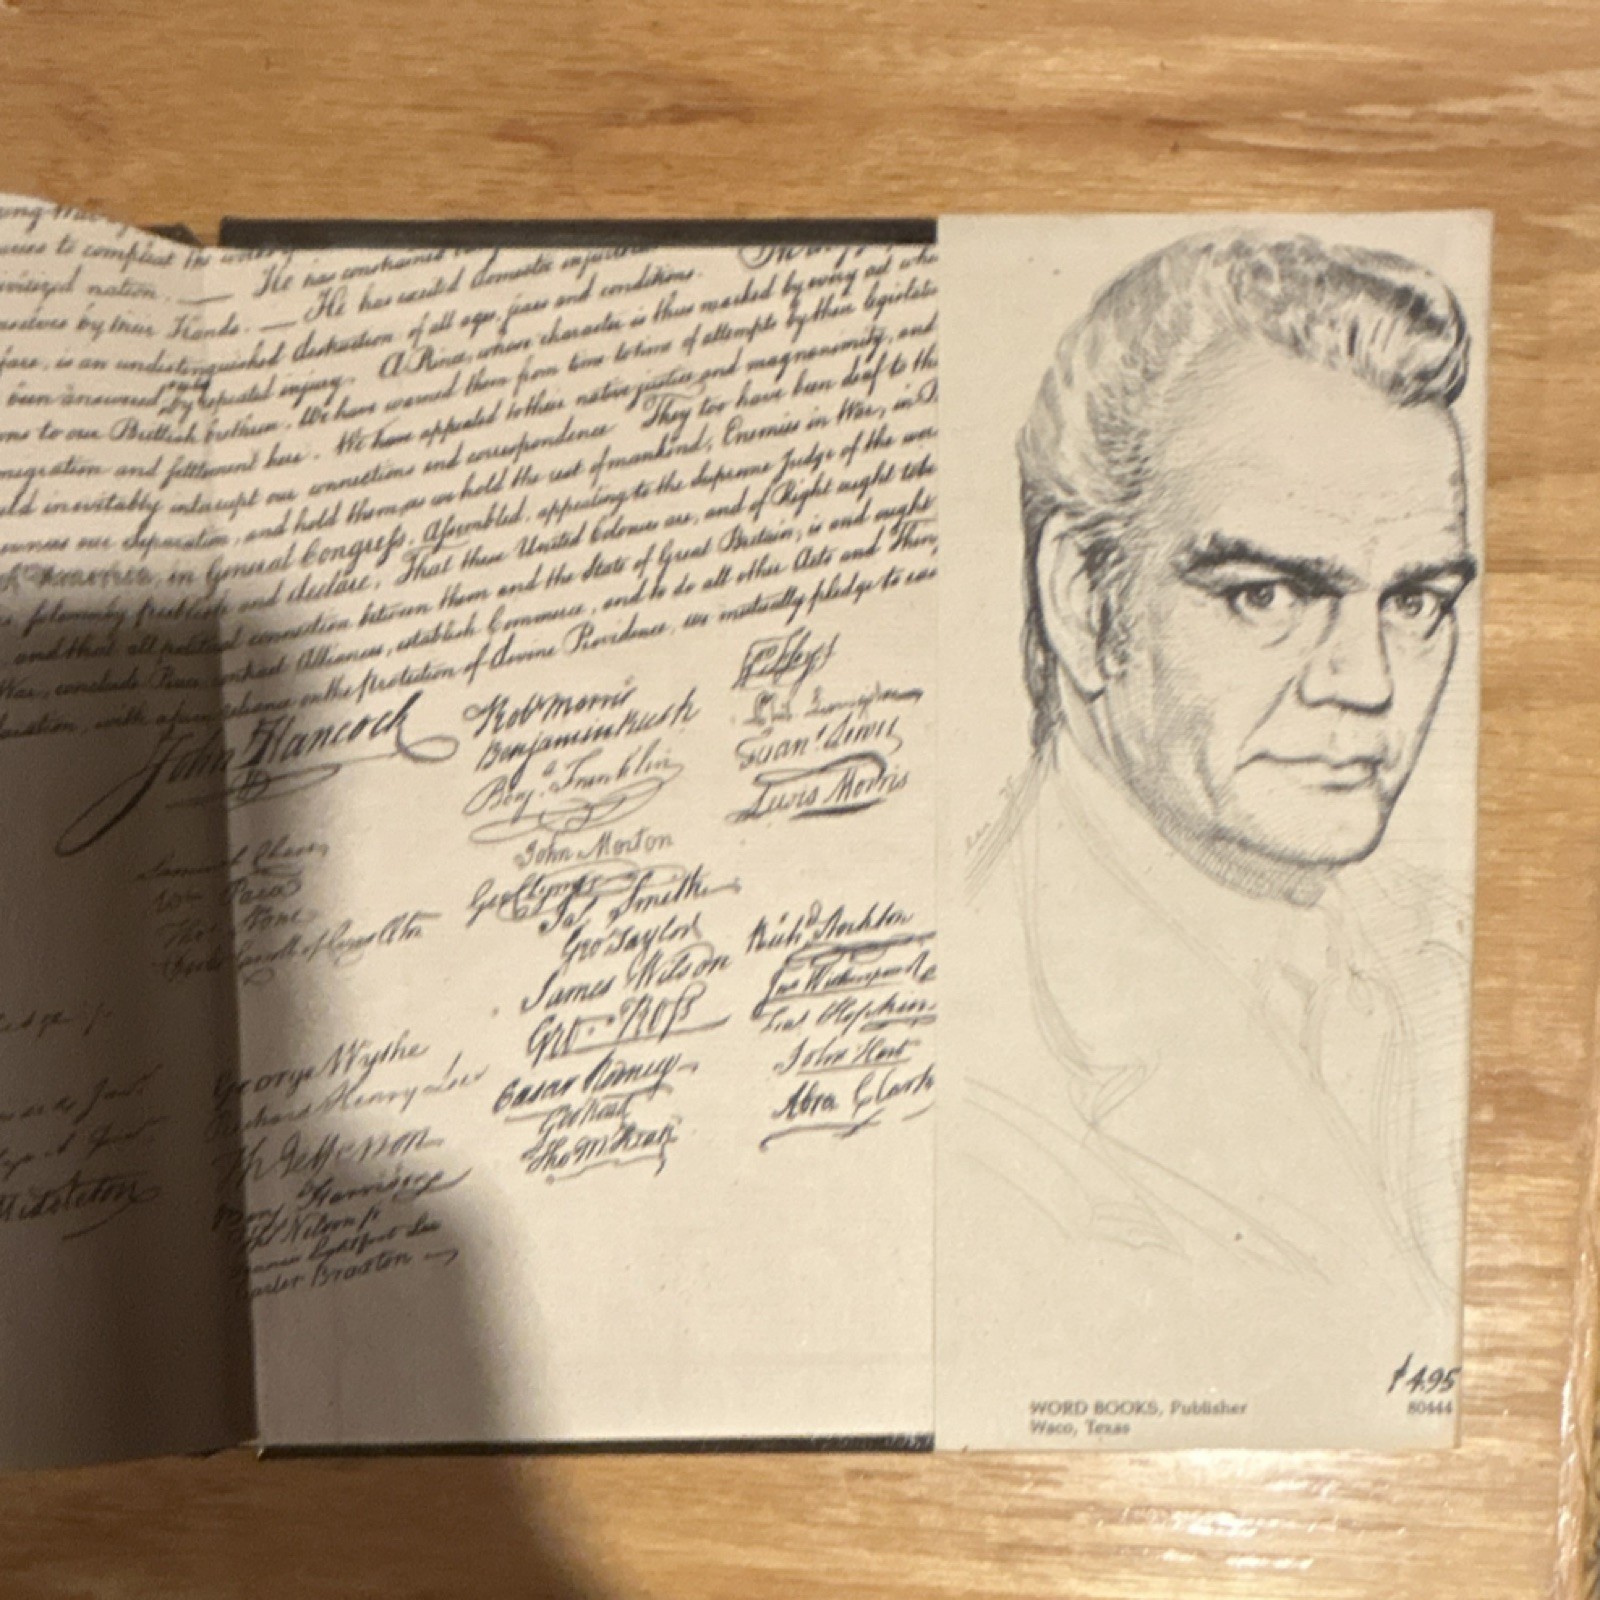 to compleat the works
civilized nation. — He has constrained
by their Hands. — He has excited domestic insurrections
is an undistinguished destruction of all ages, sexes and conditions.
been answered by repeated injury. A Prince, whose character is thus marked by every act
only
to our Brittish brethren. We have warned them from time to time of attempts by their
emigration and settlement here. We have appealed to their native justice and magnanimity, and
inevitably interrupt our connections and correspondence They too have been deaf to
our Separation, and hold them, as we hold the rest of mankind, Enemies in War, in
in General Congress, Assembled, appealing to the Supreme Judge of the
solemnly publish and declare, That these United Colonies are, and of Right ought to be
and that all political connection between them and the State of Great Britain, is and ought
War, conclude Peace, contract Alliances, establish Commerce, and to do all other Acts and
with a firm reliance on the protection of divine Providence, we mutually pledge to
John Hancock
Samuel Chase
Wm Paca
Thos Stone
Charles Carroll of Carrollton
George Wythe
Richard Henry Lee
Th Jefferson
Benj Harrison
Thos Nelson jr
Francis Lightfoot Lee
Carter Braxton
Middleton
Robt Morris
Benjamin Rush
Benja Franklin
John Morton
Geo Clymer
Jas Smith
Geo Taylor
James Wilson
Geo. Ross
Caesar Rodney
Geo Read
Tho M:Kean
Wm Floyd
Phil Livingston
Frans Lewis
Lewis Morris
Richd Stockton
Jno Witherspoon
Fras Hopkinson
John Hart
Abra Clark
$4.95
WORD BOOKS, Publisher 80444
Waco, Texas